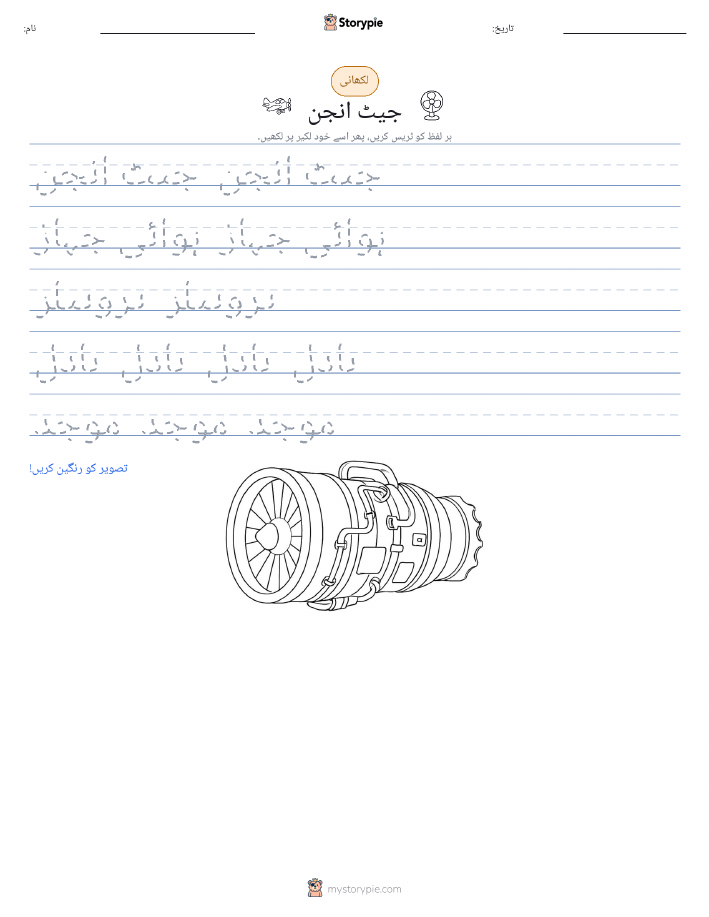 نام:
Storypie
تاریخ:
لکھائی
جیٹ انجن
ہر لفظ کو ٹریس کریں، پھر اسے خود لکیر پر لکھیں۔
جیٹ انجن جیٹ انجن
ہوائی جہاز ہوائی جہاز
پروپیلر پروپیلر
بادل بادل بادل بادل
موجد موجد موجد
تصویر کو رنگین کریں!
mystorypie.com